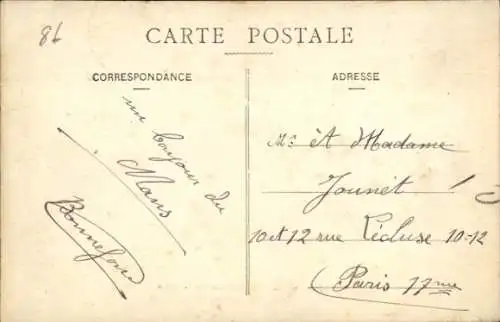 86
CARTE POSTALE
CORRESPONDANCE
ADRESSE
un bonjour du
Mans
Bonnefon
Mr èt Madame
Jounét
10 et 12 rue Lécluse 10-12
Paris 17me